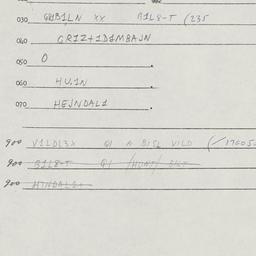 030 GUBILN XX B1L8-T (235
040 GRIZ+1D1MBAJN
050 O
060 HU1N
070 HEJNDAL1
900 V1LDL3X Q1 A BISL VILD (/17005
900 B1L8-T Q1 /HUNT/
900 H1NDAL1